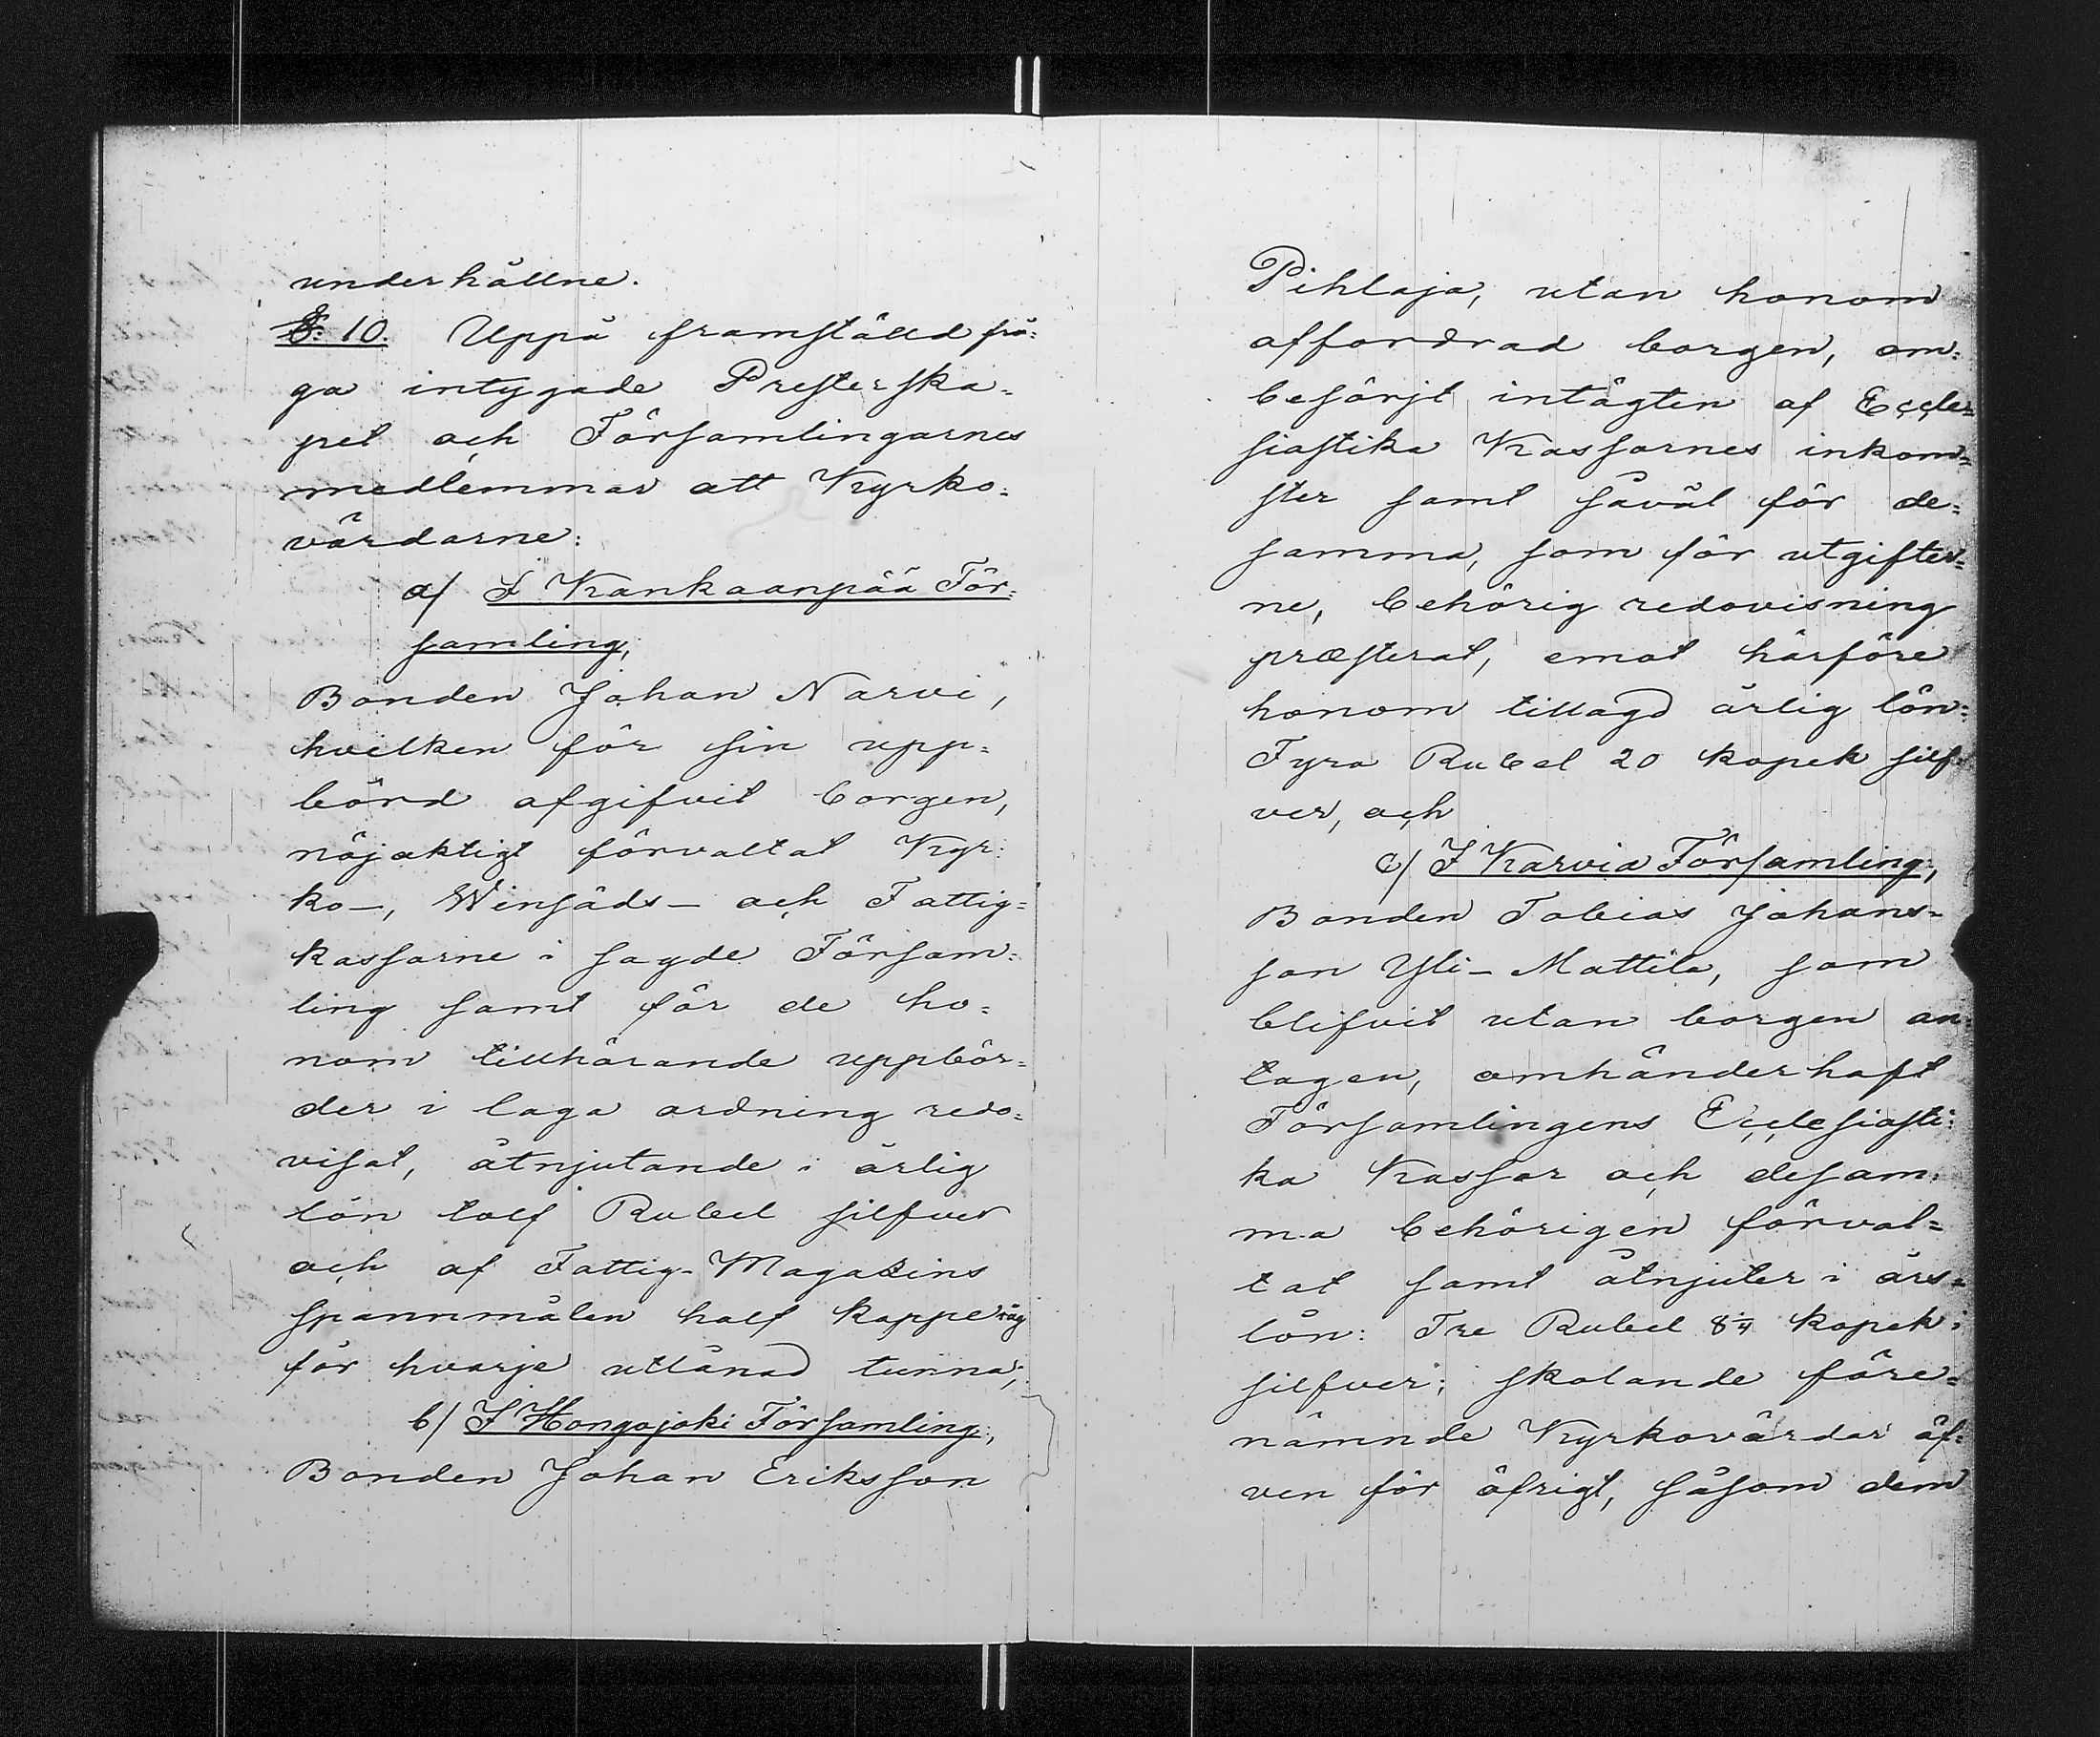 underhållne.
§. 10. Uppå framställd frå=
ga intygade Presterska=
pet och Församlingarnes
medlemmar att Kyrko=
värdarne:
a/ I Kankaanpää För=
samling,
Bonden Johan Narvi,
hvilken för sin upp=
börd afgifvit borgen,
nöjaktigt förvaltat Kyr=
ko-, Winsäds- och Fattig=
kassarne i sagde Försam=
ling samt för de ho=
nom tillhörande uppbör=
der i laga ordning redo=
visat, åtnjutande i årlig
lön tolf Rubel silfver
och af Fattig-Magazins
spannmålen half kappe råg
för hvarje utlånad tunna;
b/ I Hongojoki Församling,
Bonden Johan Eriksson
Pihlaja, utan honom
affordrad borgen, om=
besörjt intägten af Eccle=
siastika Kassornes inkom=
ster samt såväl för de=
samma, som för utgifter=
ne, behörig redovisning
præsterat, emot härföre
honom tillagd årlig lön:
Fyra Rubel 20 kopek silf=
ver, och
c/ I Karvia Församling,
Bonden Tobias Johans=
son Yli-Mattila, som
blifvit utan borgen an=
tagen, omhänderhaft
Församlingens Ecclesiasti=
ka Kassor och desam=
ma behörigen förval=
tat samt åtnjuter i års=
lön: Tre Rubel 8 1/4 kopek
silfver; skolande före=
nämnde Kyrkovärdar äf=
ven för öfrigt, såsom dem